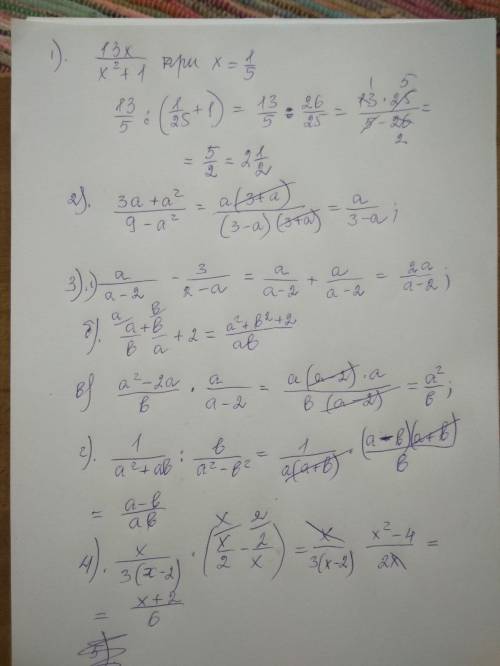 1). 13x/(x²+1) при x = 1/5
13/5 : (1/25 + 1) = 13/5 : 26/25 = (13 · 25)/(5 · 26) =
= 5/2 = 2 1/2
2). (3a + a²)/(9 - a²) = a(3+a)/((3-a)(3+a)) = a/(3-a);
3). 1) a/(a-2) - 3/(2-a) = a/(a-2) + a/(a-2) = 2a/(a-2);
б). a/в + в/a + 2 = (a² + в² + 2)/(aв)
в) (a² - 2a)/в · a/(a-2) = (a(a-2) · a)/(в(a-2)) = a²/в;
г). 1/(a² + aв) : в/(a² - в²) = 1/(a(a+в)) · ((a-в)(a+в))/в
= (a-в)/(aв)
4). x/(3(x-2)) · (x/2 - 2/x) = x/(3(x-2)) (x² - 4)/(2x) =
= (x+2)/6
5)